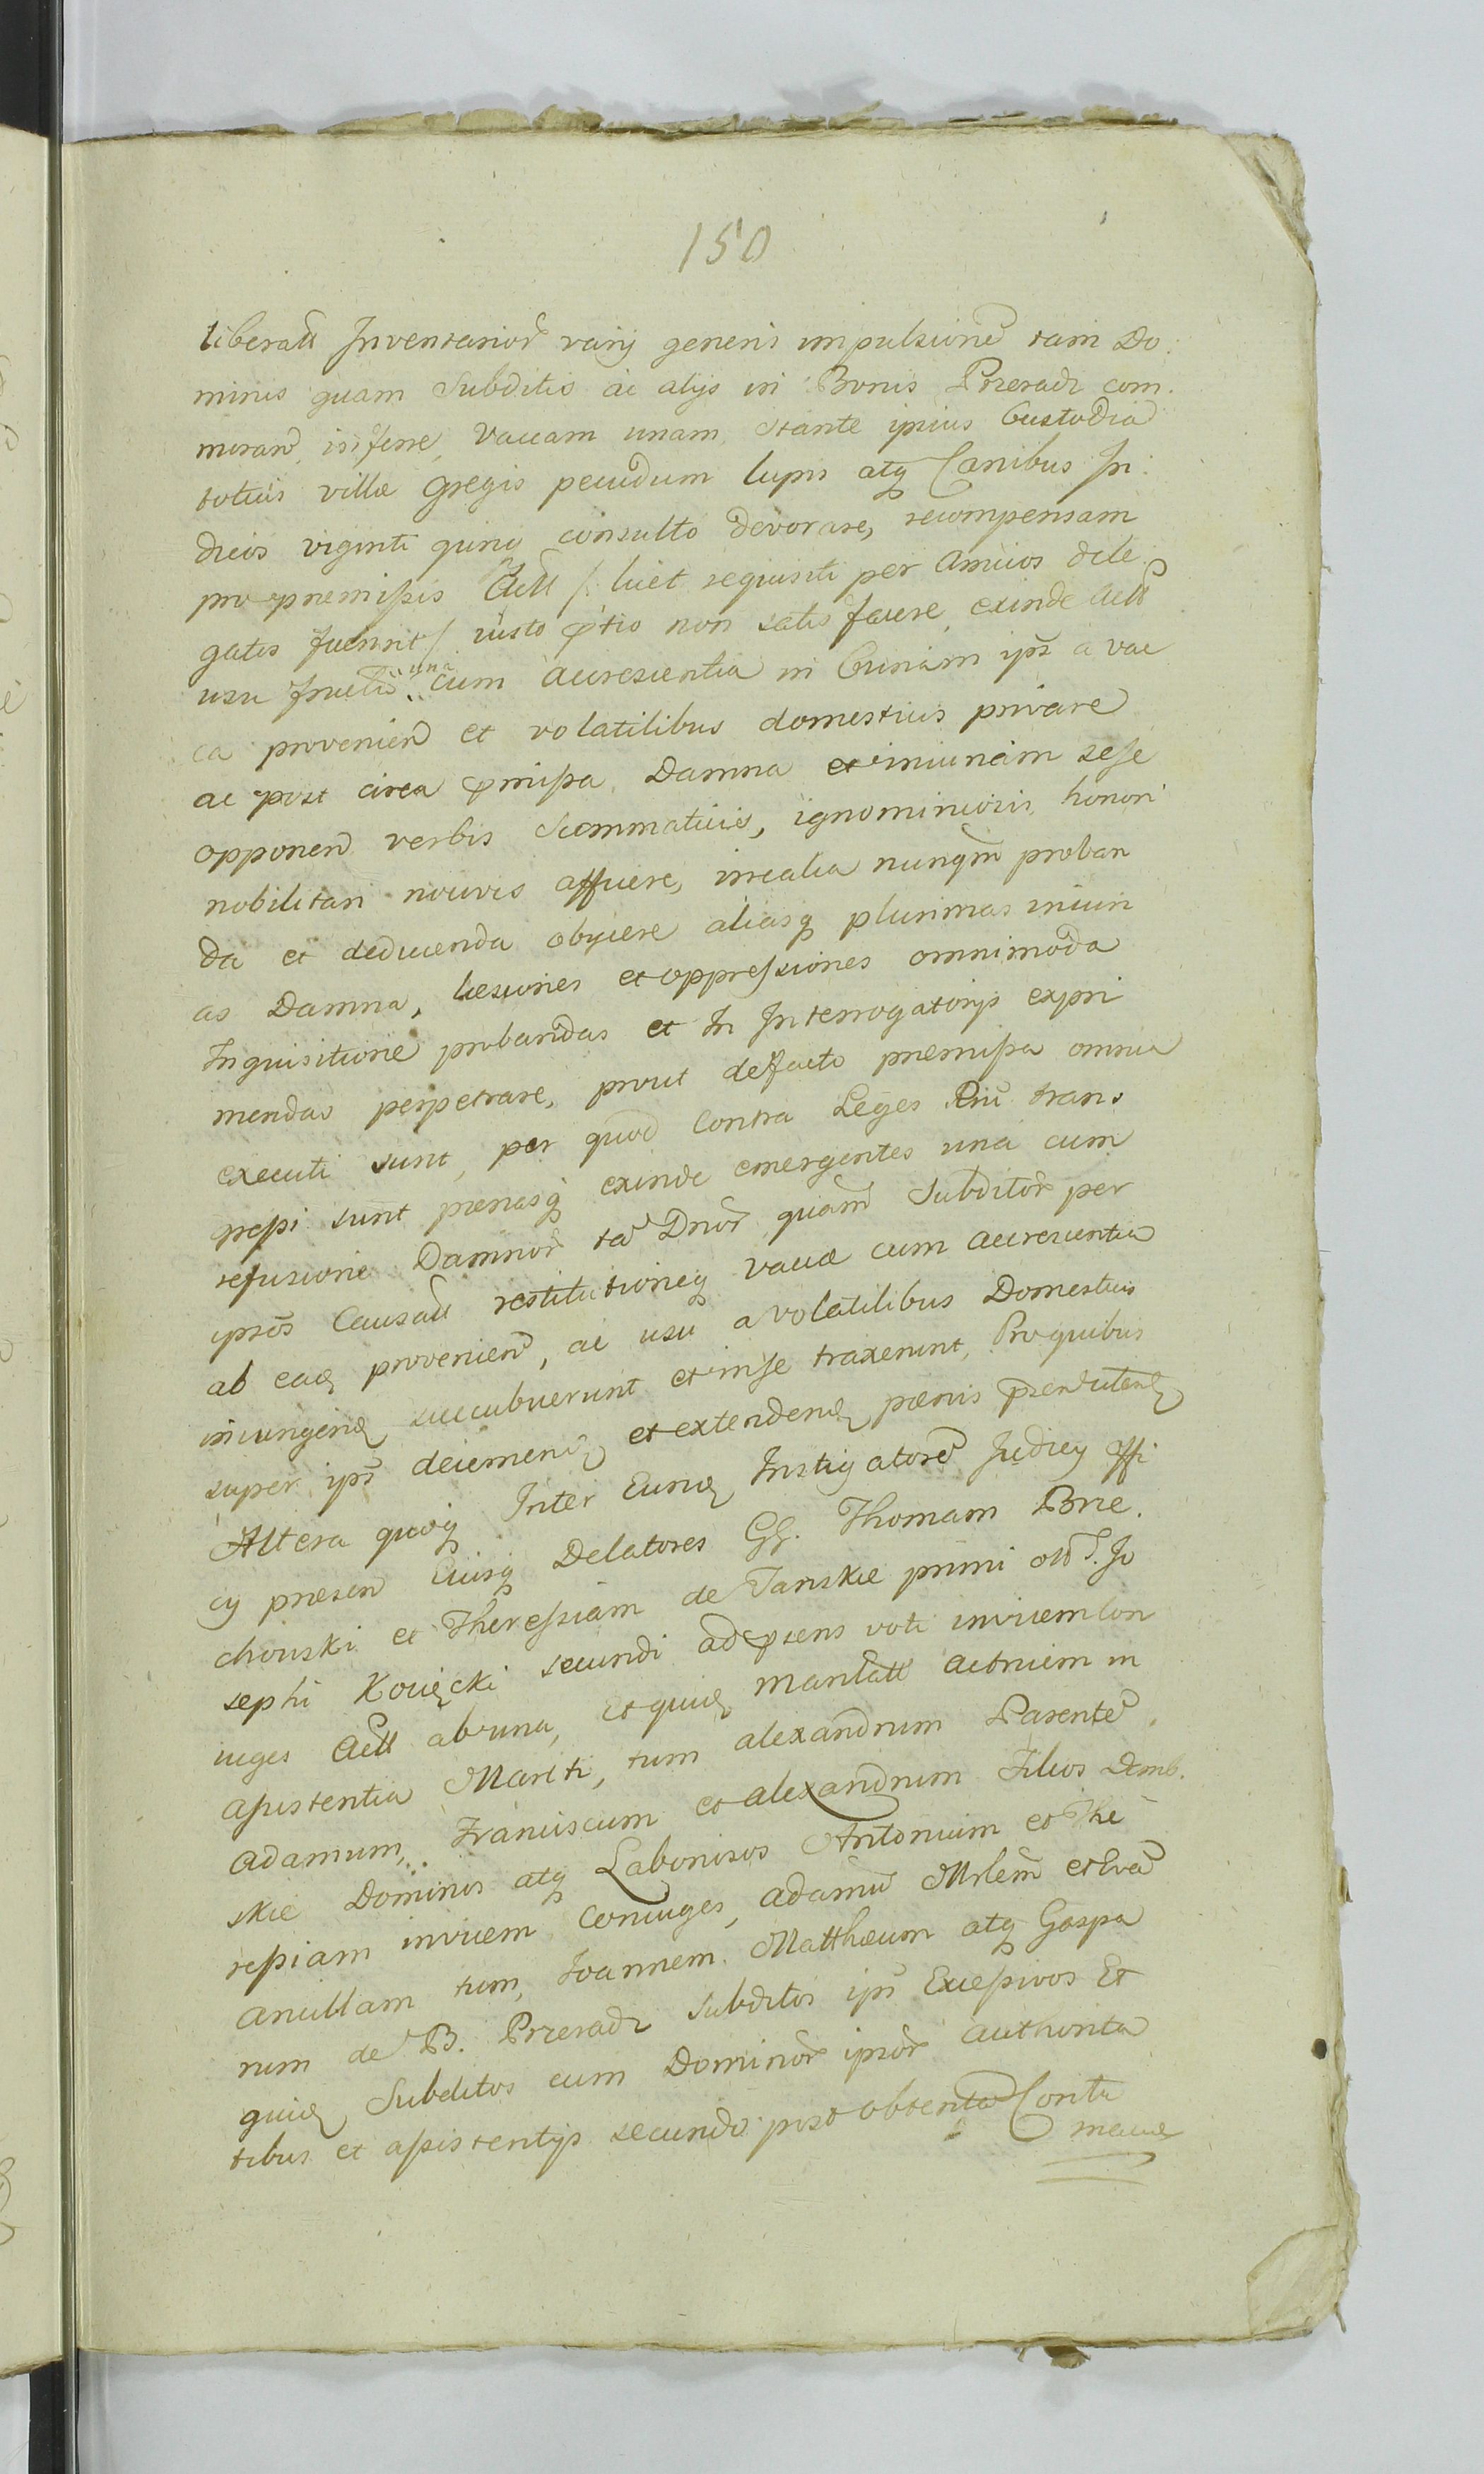 150
liberatt Inventarior varij generis impulsione tam Do:
minis quam Subditis ac alijs in Bonis Przeradz com.
moran, inferre, Vaccam unam, stante ipsius Custodia
totius villæ gregis pecudum lupis atq Canibus In:
dicos viginti quinq consulto devorare, recompensam
pro præmissis Actt /: licet requisiti per Amicos dele:
gatos fuerint / iusto prtio non satisfacere, exinde Actt
usu fructu una cum accrescentia in Curiam ips a vac
ca provenien et volatilibus domesticis privare
ac post circa pmissa Damna et iniuriam sese
opponen verbis Scommaticis, ignominiosis, honori
nobilitari nocivis afficere, irrealia nunqm proban
da et deducenda obijcere aliasq plurimas iniuri
as Damna, læsiones et oppressiones omnimoda
Inquisitione probandas et In Interrogatorijs expri
mendas perpetrare, prout de facto præmissa omnia
executi sunt, per quod Contra Leges Rni trans
gressi sunt pœnasq exinde emergentes una cum
refusione Damnor ta Dnor quam Subditor per
ipsos Causatt restitutioneq vaccæ cum accrescentia
ab eaq provenien, ac usu a volatilibus Domesticis
iniungenq succubuerunt et in se traxerunt, Pro quibus
super ips decernenq et extendenq pœnis
Altera quoq Inter Eunq Instigatore Judicij Offi
cij præsen Eiusq Delatores GG. Thomam Brze.
chowski et Theressiam de Tanskie primi olt S. Jo
sephi Kowięcki secundi ad præsens voti invicem Con
iuges Actt ab una, Et quiq Marlatt actricem in
assistentia Mariti, tum Alexandrum Parente,
Adamum, Franciscum et Alexandrum Filios Demb.
skie Dominos atq Laboriosos Antonium et The
ressiam invicem Coniuges, Adamu Mrlem et Eva
ancillam tum, Joannem, Matthæum atq Gaspa
rum de B. Przeradz subditos ips Excessivos Et
quiq Subditos cum Dominor ipsor authorita
tibus et assistentijs secundo post obtenta Contu
macia